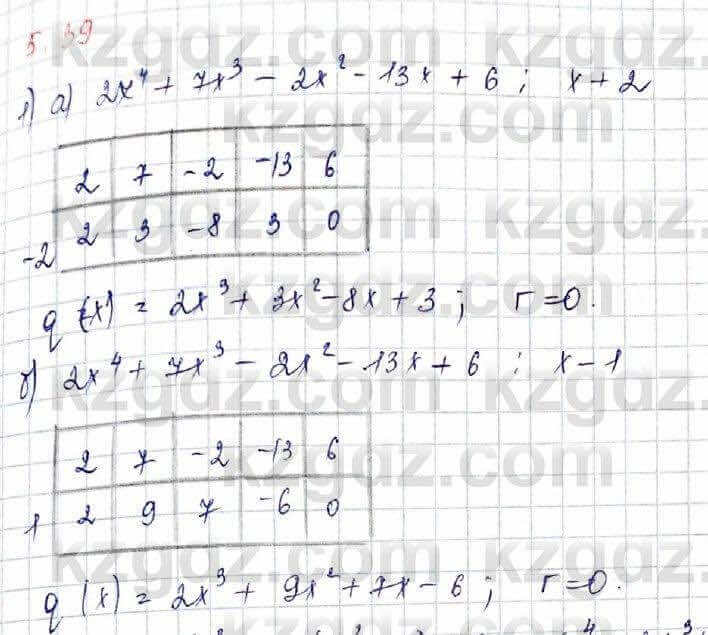 5.39
1) а) 2x⁴ + 7x³ - 2x² - 13x + 6 ; x + 2
2 7 -2 -13 6
-2 2 3 -8 3 0
q(x) = 2x³ + 3x² - 8x + 3 ; r = 0.
б) 2x⁴ + 7x³ - 2x² - 13x + 6 ; x - 1
2 7 -2 -13 6
1 2 9 7 -6 0
q(x) = 2x³ + 9x² + 7x - 6 ; r = 0.
kzgdz.com